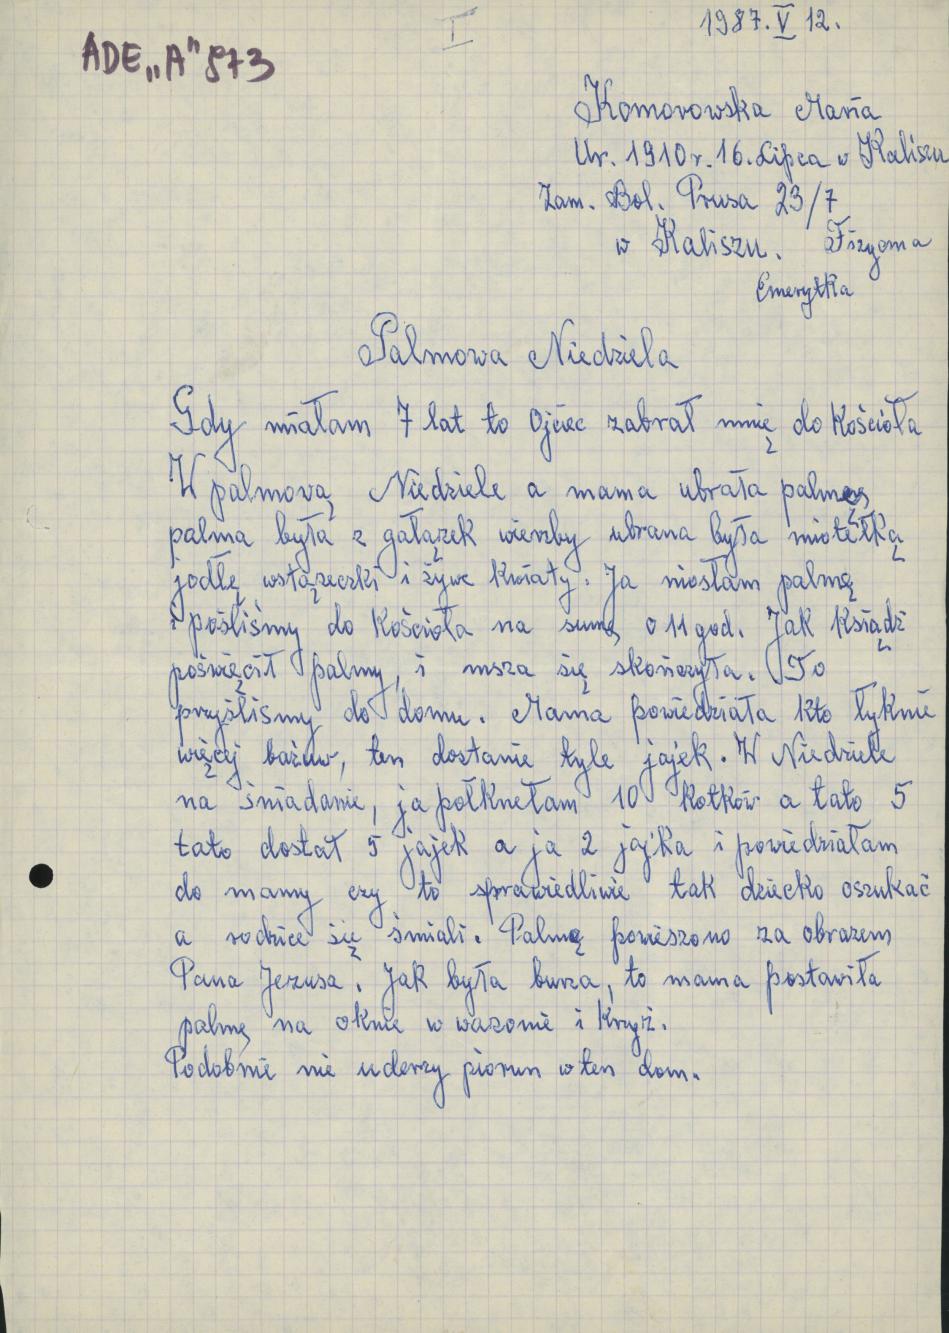 I
1987.V 12.
ADE „A" 873
Komorowska Maria
Ur. 1910 r. 16. Lipca w Kaliszu
Zam. Bol. Prusa 23/7
w Kaliszu. Fizyczna
Emerytka
Palmowa Niedziela
Gdy miałam 7 lat to Ojciec zabrał mnię do Kościoła
W palmową Niedziele a mama ubrała palmę
palma była z gałązek wierzby ubrana była miotełką
jodłę wstążeczki i żywe kwiaty. Ja niosłam palmę
i pośliśmy do Kościoła na sumę o 11 god. Jak Ksiądz
poświęcił palmy, i msza się skończyła. To
przyśliśmy do domu. Mama powiedziała kto łyknie
więcej baźuw, ten dostanie tyle jajek. W Niedziele
na śniadanie, ja połknełam 10 kotków a tato 5
tato dostał 5 jajek a ja 2 jajka i powiedziałam
do mamy czy to sprawiedliwie tak dziecko oszukać
a rodzice się śmiali. Palmę powieszono za obrazem
Pana Jezusa. Jak była burza, to mama postawiła
palmę na oknie w wazonie i Krzyż.
Podobnie nie uderzy piorun w ten dom.